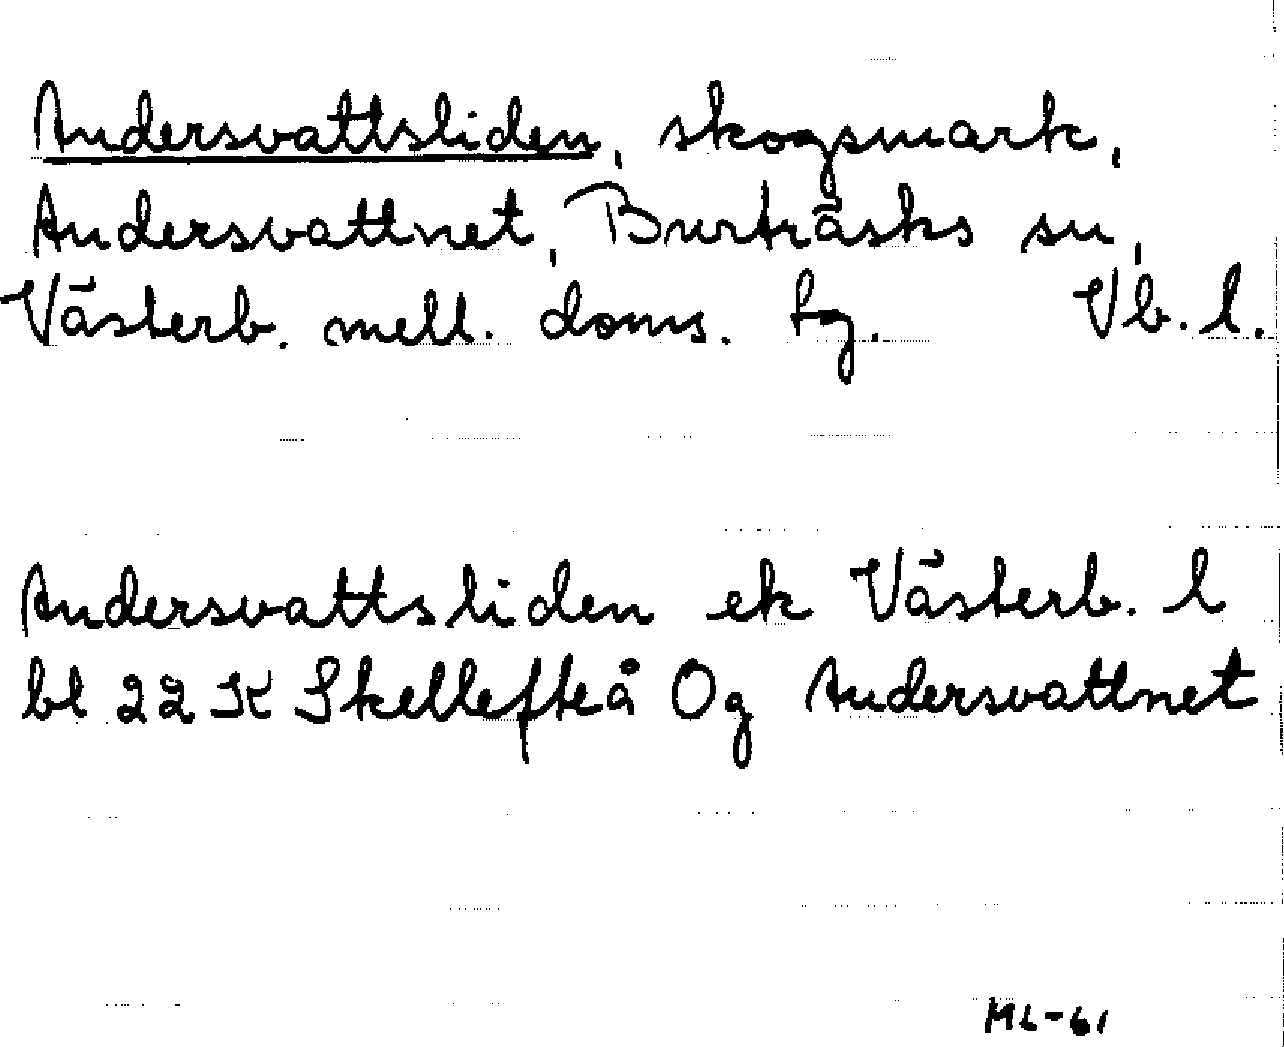 Andersvattsliden, skogsmark,
Andersvattnet, Burträsks sn,
Västerb. mell. doms. tg. Vb. l.
Andersvattsliden ek Västerb. l
bl 22 K Skellefteå Og Andersvattnet
ML-61